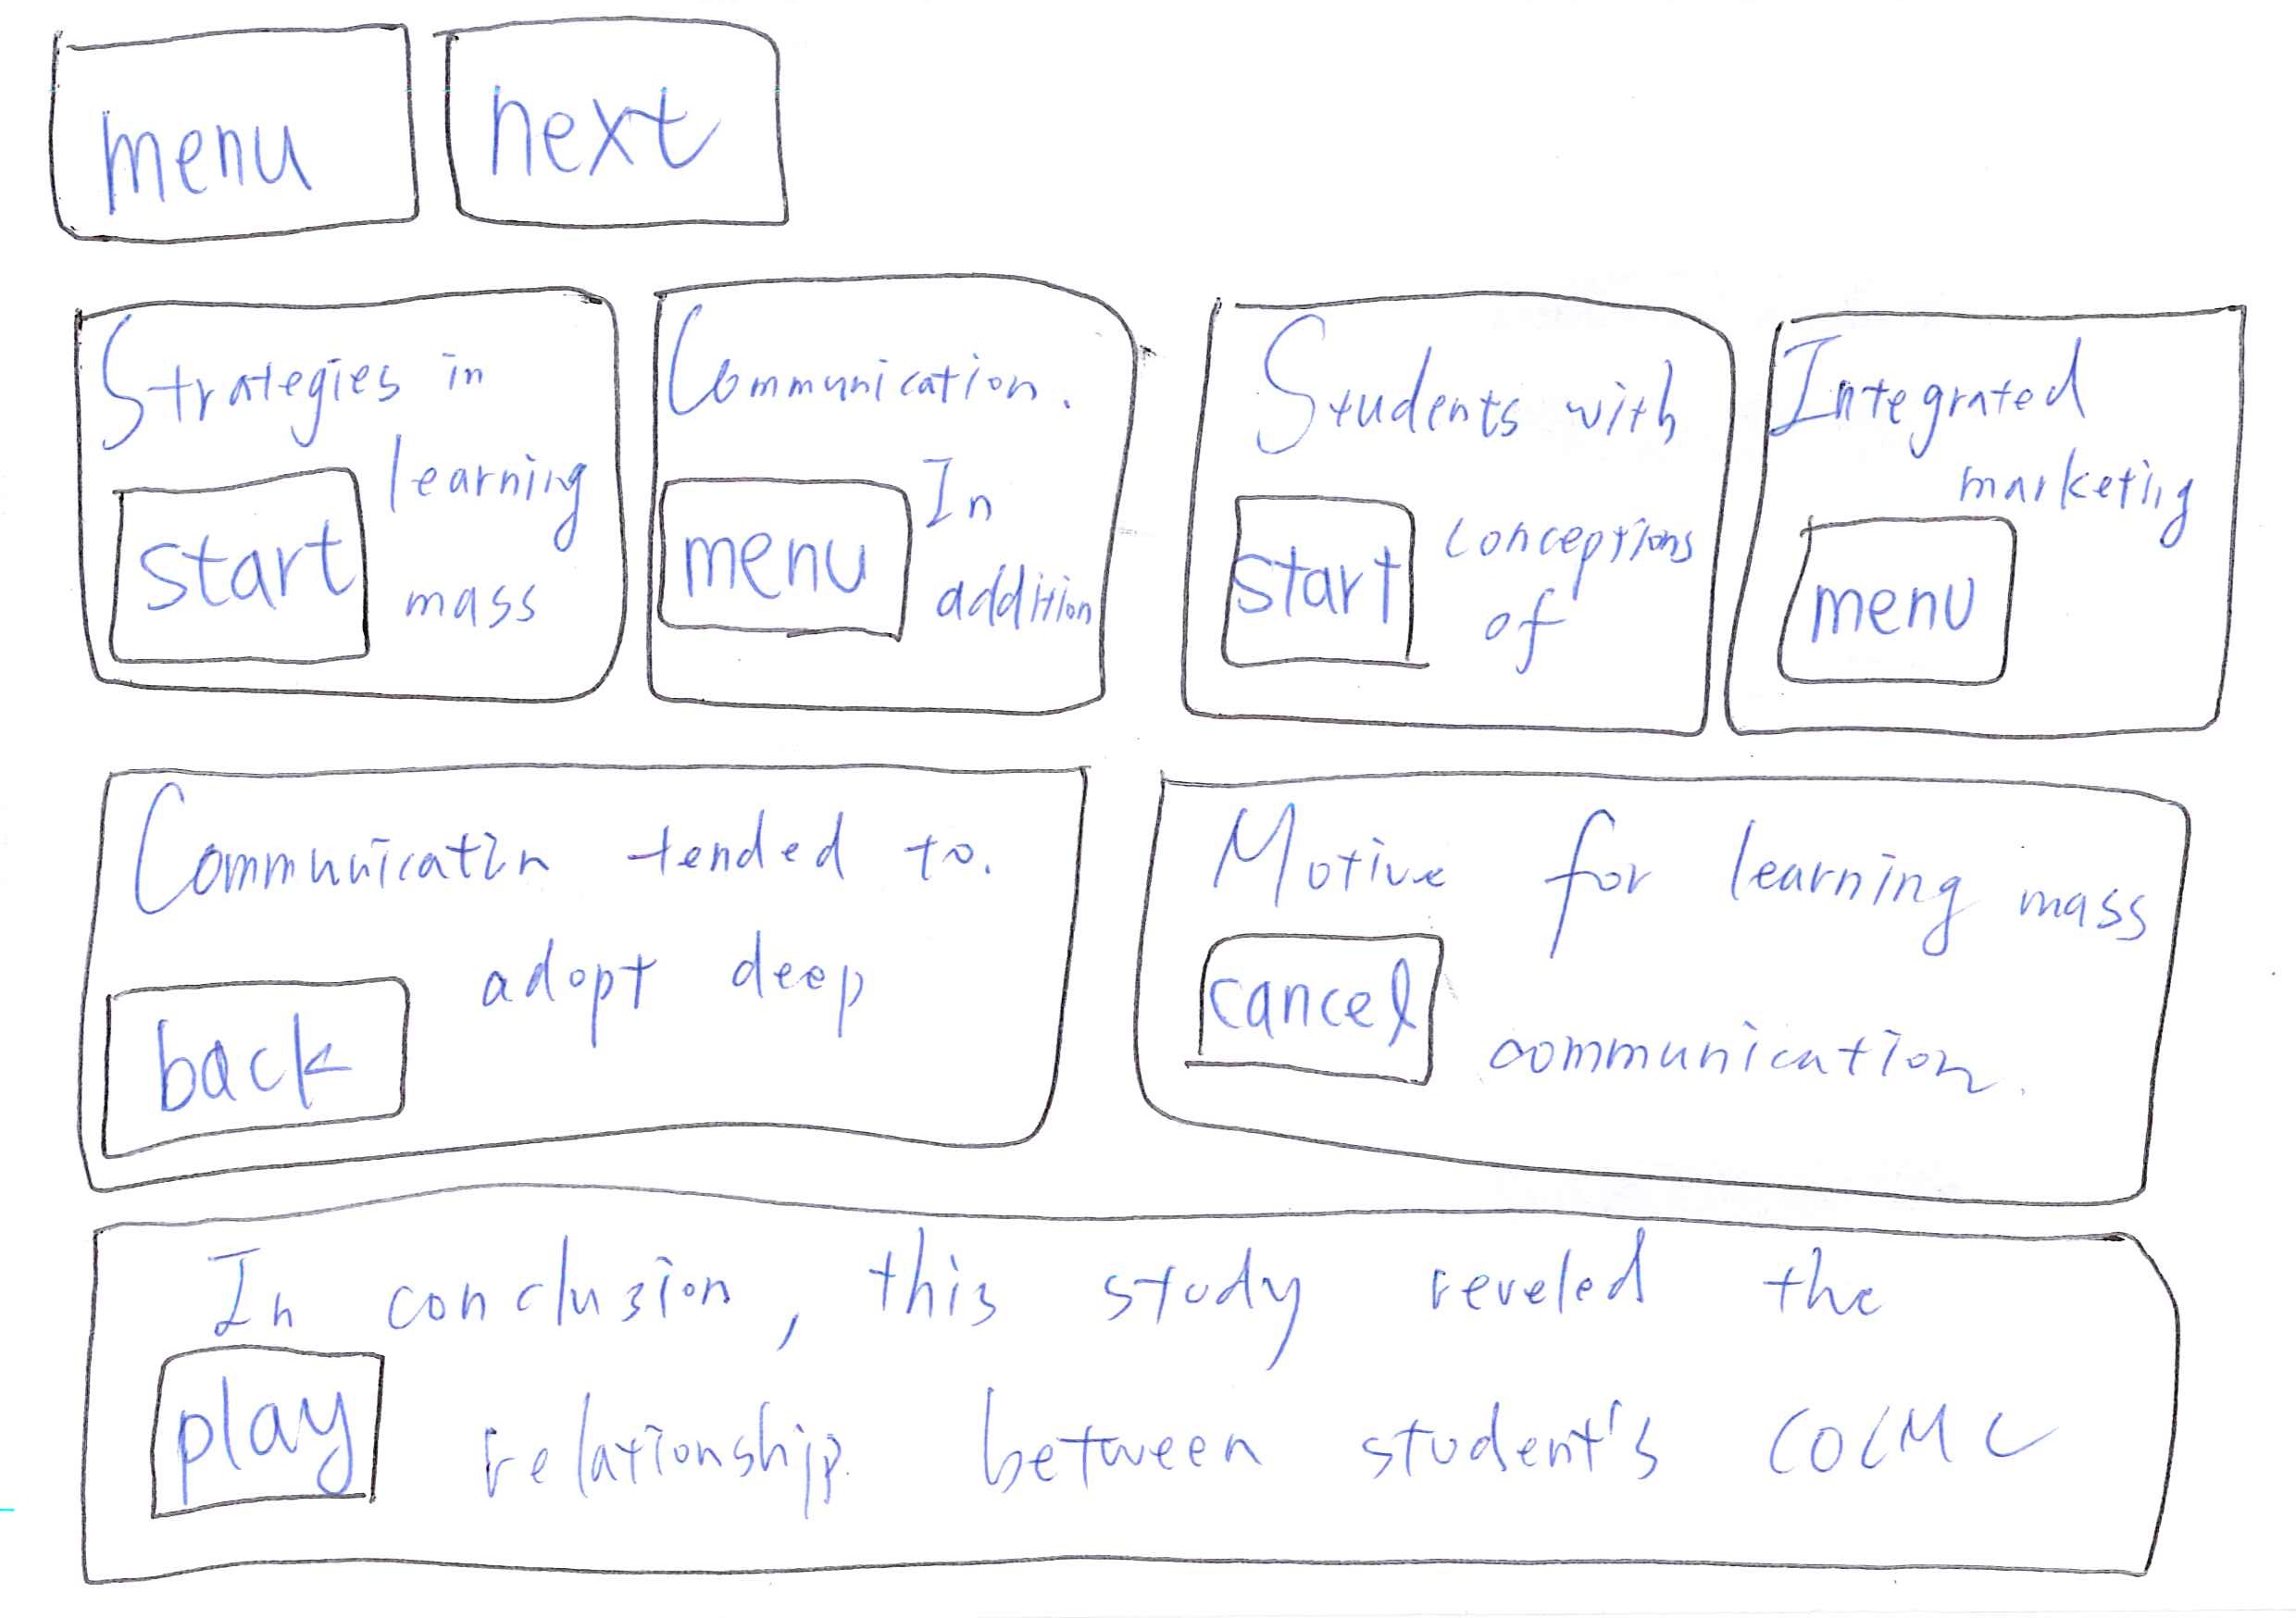 menu
next
Strategies in
learning
start
mass
Communication.
In
menu
addition
Students with
conceptions
start
of
Integrated
marketing
menu
Communicatin tended to.
adopt deep
back
Motive for learning mass
cancel
communication.
In conclusion, this study reveled the
play
relationship between student's COCMC